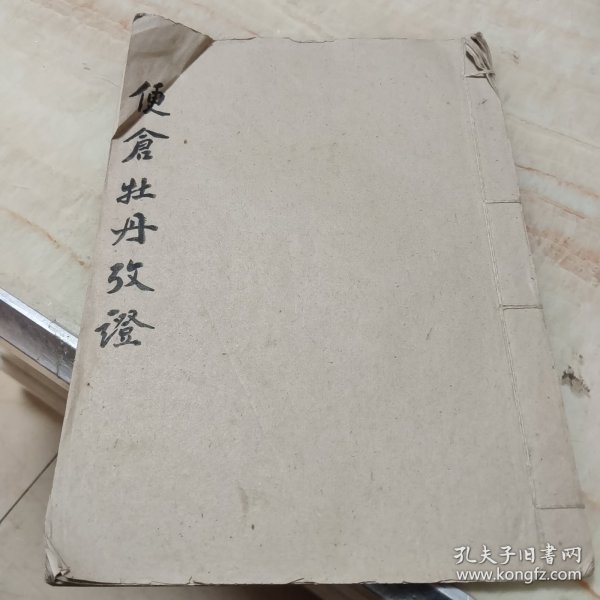 便倉牡丹攷證
孔夫子旧書网
www.kongfz.com